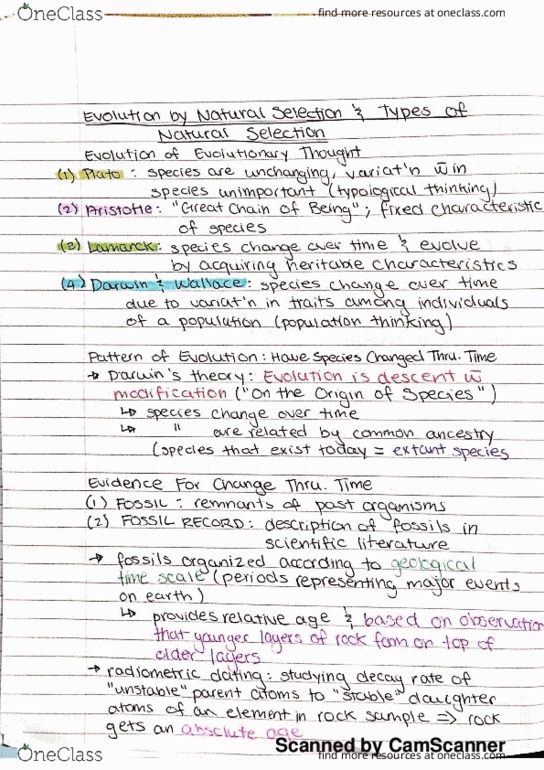 OneClass
find more resources at oneclass.com
Evolution by Natural Selection & Types of
Natural Selection
Evolution of Evolutionary Thought
(1) Plato : species are unchanging, variat'n w̄in
species unimportant (typological thinking)
(2) Aristotle: "Great Chain of Being"; fixed characteristic
of species
(3) Lamarck: species change over time & evolve
by acquiring heritable characteristics
(4) Darwin & Wallace: species change over time
due to variat'n in traits among individuals
of a population (population thinking)
Pattern of Evolution: Have Species Changed Thru. Time
→ Darwin's theory: Evolution is descent w̄
modification ("On the Origin of Species")
↳ species change over time
↳ " are related by common ancestry
(species that exist today = extant species
Evidence For Change Thru. Time
(1) FOSSIL : remnants of past organisms
(2) FOSSIL RECORD: description of fossils in
scientific literature
→ fossils organized according to geological
time scale (periods representing major events
on earth)
↳ provides relative age & based on observation
that younger layers of rock form on top of
older layers
→ radiometric dating: studying decay rate of
"unstable" parent atoms to "stable" daughter
atoms of an element in rock sample => rock
gets an absolute age
Scanned by CamScanner
OneClass
find more resources at oneclass.com